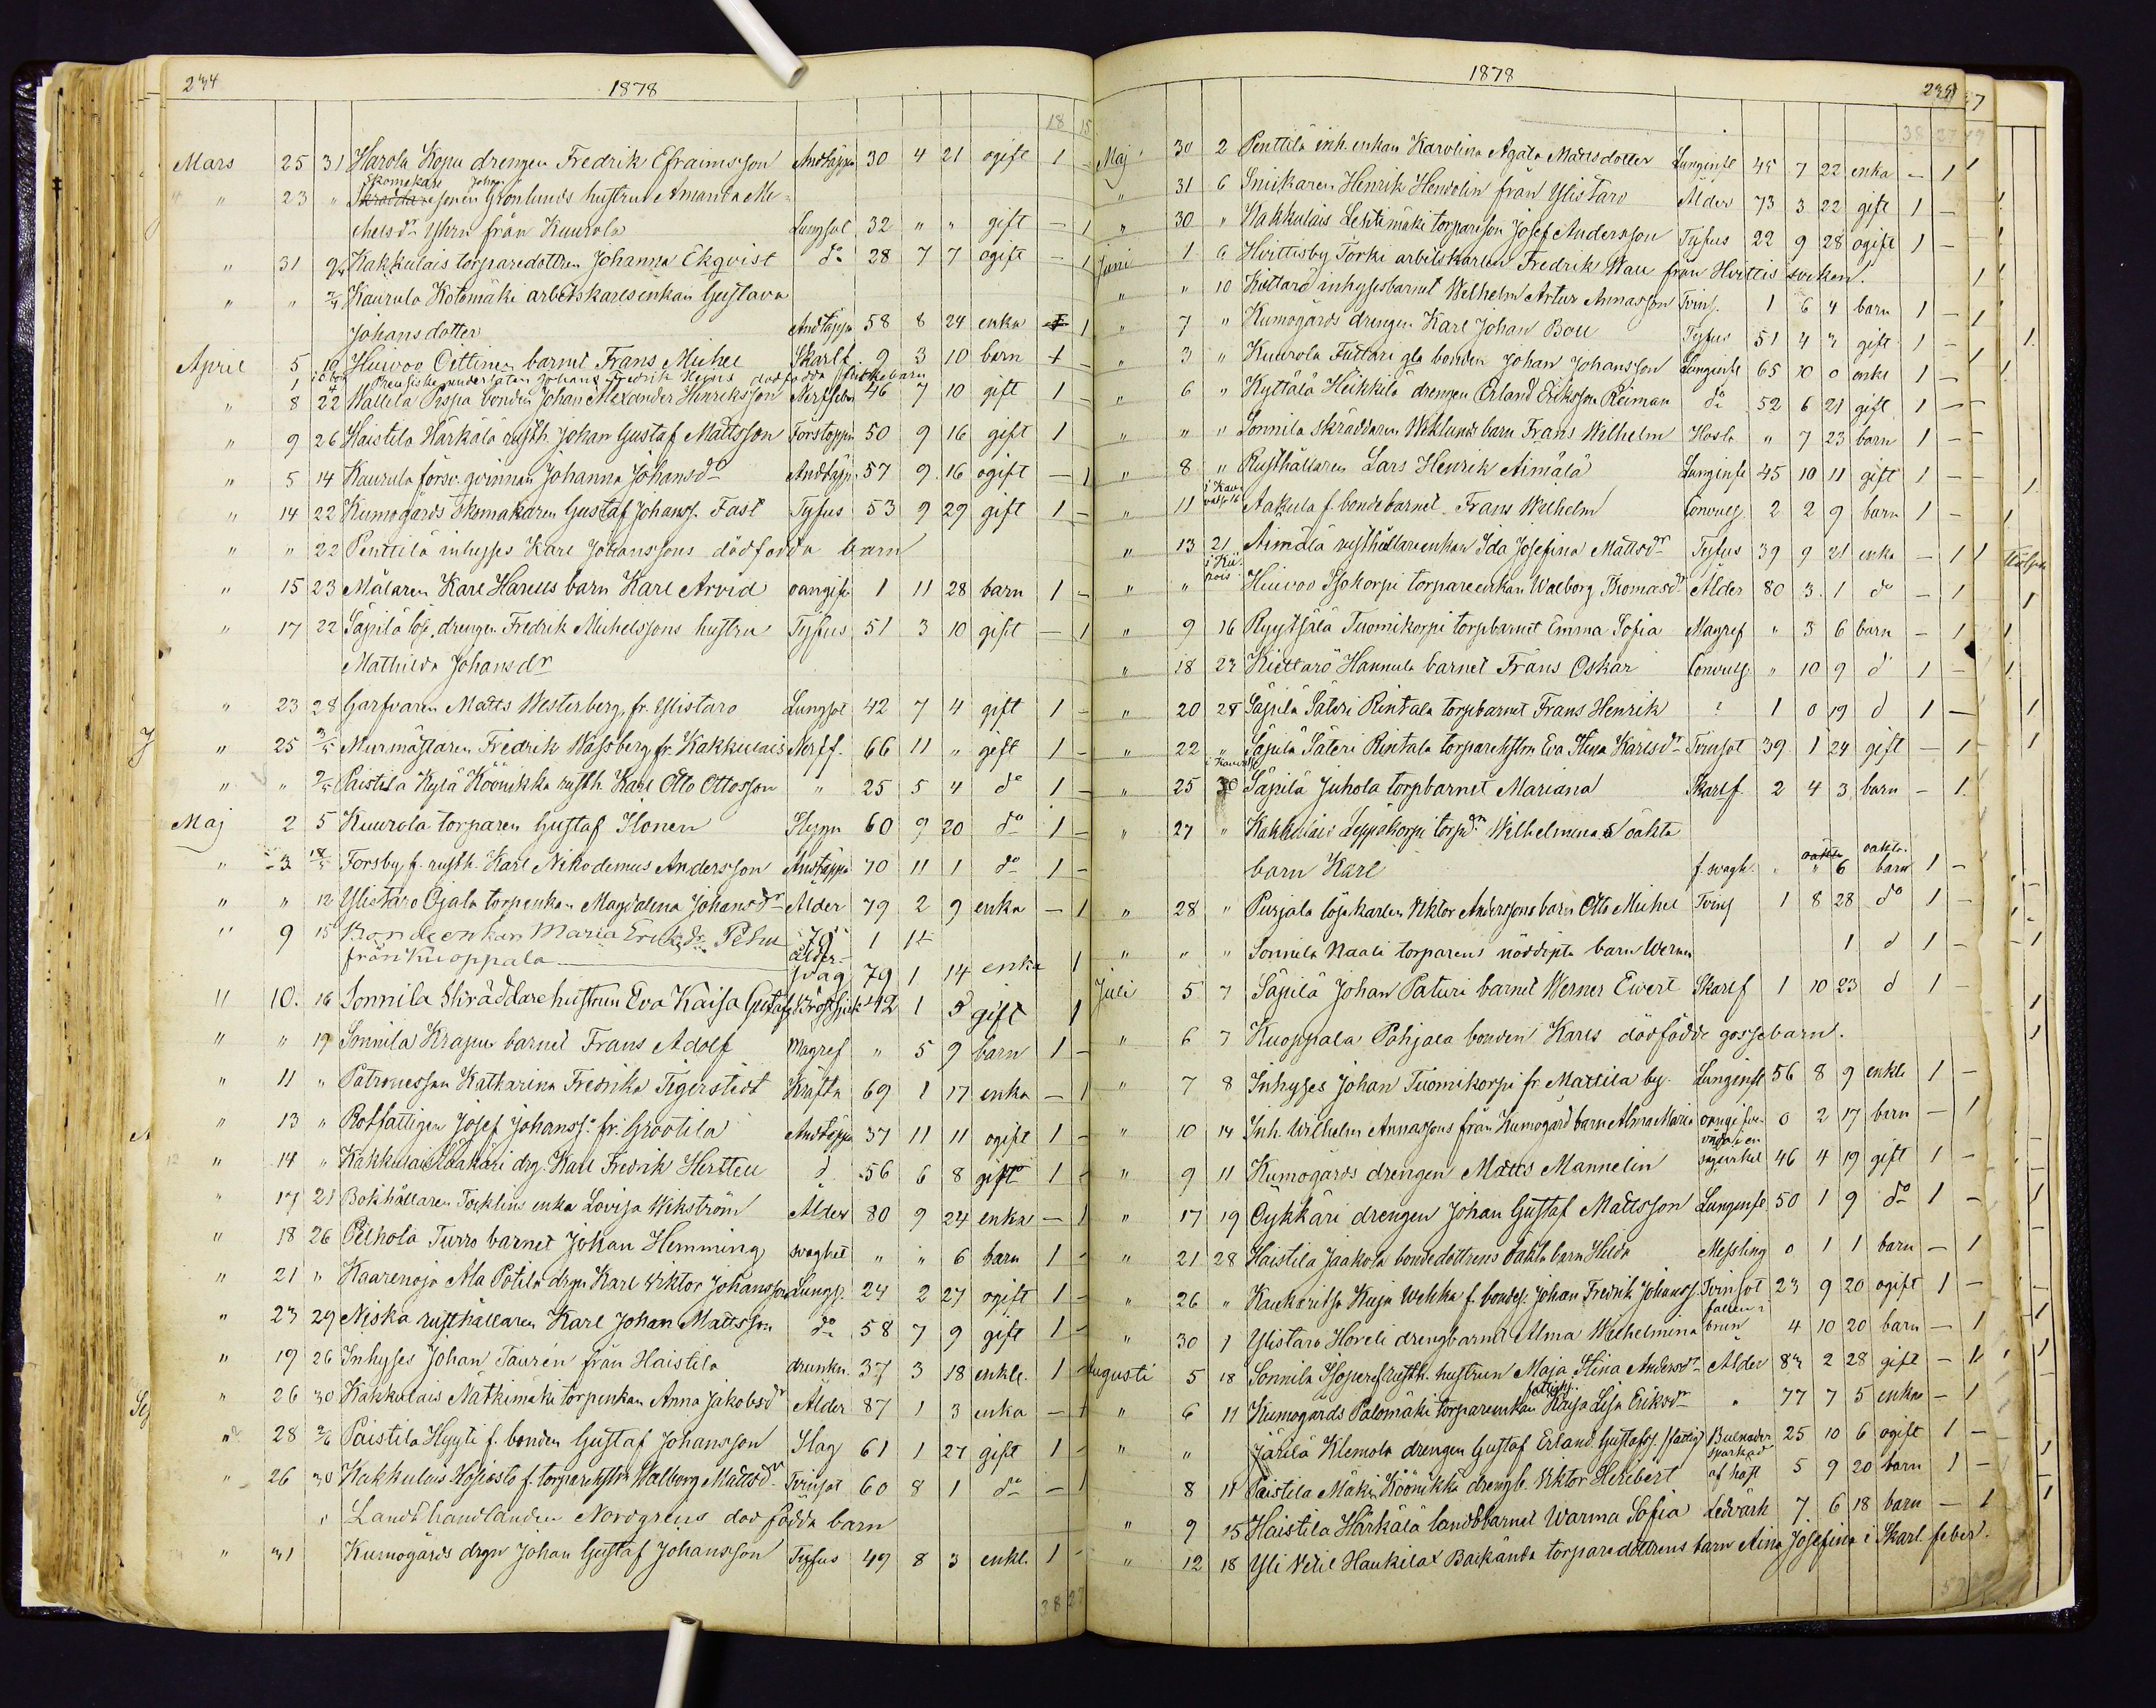 234
1878
18 15
Mars 25 31 Harola Kopu drengen Fredrik Efraimsson Andtäppa 30 4 21 ogift 1 -
" 23 " Skomakare Johan
Skräddaresonen Grönlunds hustru Amanda Mi-
chelsdr från Kuurola Lungsot 32 " " gift - 1
" 31 Kakkulais torparedottren Johanna Ekqvist do 28 7 7 ogift - 1
" " Kaurula Kotomäki arbetskarlsenkan Gustava
Johansdotter Andtäppa 58 8 24 enka 1
April 5 10 Huivoo Oettinen barnet Frans Michel Skarlf. 9 3 10 barn 1
1 Preusiske undersåten Johans Fredrik dödfödda barn
" 8 22 Wallila Pispa bonden Johan Alexander Henriksson Nerffeber 46 7 10 gift 1 -
" 9 26 Haistila Härkälä rusth. Johan Gustaf Mattsson Förstoppn 50 9 16 gift 1
" 5 14 Kaurula försv. qvinnan Johanna Johansdr Andtäpp. 57 9 16 ogift - 1
" 14 22 Kumogårds Skomakaren Gustaf Johanss. Fast Tyfus 53 9 29 gift 1 -
" " 22 Penttilä inhyses Karl Johanssons dödfödda barn
" 15 23 Målaren Karl Harells barn Karl Arvid oangifv 1 11 28 barn 1 -
" 17 22 Säpilä lösdrengen Fredrik Michelssons hustru Tyfus 51 3 10 gift - 1
Mathilda Johansdr
" 23 28 Garfvaren Matts Westerberg, fr. Ylistaro Lungsot 42 7 4 gift 1 -
" 25 2/5 Murmästaren Fredrik Wassberg fr. Kakkulais Nerff. 66 11 " gift 1 -
" " 2/5 Paistila Kylä Köönikkä rusth. Karl Otto Ottosson " 25 5 4 do 1 -
Maj 2 5 Kuurola torparen Gustaf Ilonen Styng 60 9 20 do 1 -
" 3 Forsby f. rusth. Karl Nikodemus Andersson Andtäppa 70 11 1 do 1 -
" " 12 Ylistaro Ojala torpenkan Magdalena Johansdr Ålder 79 2 9 enka - 1
" 9 15 Bondeenkan Maria Eriksdr Pelu 79 1 14
från Kuoppala ålder- svag 79 1 14 enka 1
" 10. 16 Sonnila Skräddarehustrun Eva Kaisa Gustafs Bröstsjuk 42 1 5 gift 1
" " 19 Sonnila Krapu barnet Frans Adolf Magref " 5 9 barn 1 -
" 11 " Patronessan Katharina Fredrika Tigerstedt Kräfta 69 1 17 enka - 1
" 13 " Rotfattigen Josef Johanss. fr. Grootila Andtäppa 37 11 11 ogift 1 -
" 14 " Kakkulais drg. Karl Fredrik Hertteu d 56 6 8 gift 1 -
" 17 21 Bokhållaren Tocklins enka Lovisa Wikström Ålder 80 9 24 enka - 1
" 18 26 Pelhola Turro barnet Johan Hemming svaghet " " 6 barn 1 -
" 21 " Kaarenoja Ala Potila drgn Karl Viktor Johansson Lungs. 24 2 27 ogift 1 -
" 23 29 Niska rusthållaren Karl Johan Mattsson do 58 7 9 gift 1 -
" 19 26 Inhyses Johan Taurén från Haistila drunkn. 37 3 18 enkl. 1 -
" 26 30 Kakkulais Mätkimäki torpenkan Anna Jakobsdr Ålder 87 1 3 enka - 1
" 28 2/6 Paistila Hyyti f. bonden Gustaf Johansson Slag 61 1 27 gift 1 -
" 26 30 Kakkulais Kosiosto f. torparehstr Walborg Mattsdr Tvinsot 60 8 1 do - 1
" Landthandlanden Nordgréns dödfödda barn
" 31 Kumogårds drgn Johan Gustaf Johansson Tyfus 49 8 3 enkl. 1 -
38 27
1878
38 27
Maj 30 2 Penttilä inh. enkan Karolina Agata Mattsdotter Lunginfl 45 7 22 enka - 1
" 31 6 Snickaren Henrik Hendolin från Ylistaro Ålder 73 3 22 gift 1 -
" 30 " Kakkulais Lehtimäki torpareson Josef Andersson Tyfus 22 9 28 ogift 1 -
Juni 1 6 Hvittisby Torki arbetskarlen Fredrik Wall från Hvittis socken.
" " 10 Kiettarö inhysesbarnet Wilhelm Artur Annasson Tvins. 1 6 4 barn 1 -
" 7 " Kumogårds drengen Karl Johan Boll Tyfus 51 4 gift 1 -
" 3 " Kuurola Futtari gla bonden Johan Johansson Lunginfl 65 10 0 enkl 1 -
" 6 " Kyttälä Heikkilä drengen Erland Eriksson Reiman do 52 6 21 gift 1 -
" " " Sonnila skräddaren Weklunds barn Frans Wilhelm Hosta " 7 23 barn 1 -
" 8 " Rusthållaren Lars Henrik Aimälä Lunginfl 45 10 11 gift 1 -
" 11 Aakula f. bondebarnet Frans Wilhelm Convuls. 2 2 9 barn 1 -
" 13 21 Aimälä rusthållareenkan Ida Josefina Mattsdr Tyfus 39 9 21 enka - 1
" " Huivoo Isokorpi torpareenkan Walborg Thomasdr Ålder 80 3 1 do - 1
" 9 16 Ryytsälä Tuomikorpi torpbarnet Emma Sofia Magref " 3 6 barn - 1
" 18 23 Kiettarö Hannula barnet Frans Oskar Convuls. " 10 9 d 1 -
" 20 28 Säpilä Säteri Rintala torpbarnet Frans Henrik ? 1 0 19 d 1 -
" 22 " Säpilä Säteri Rintala torparehstrn Eva Stina Karlsdr Tvinsot 39 1 24 gift - 1
" 25 30 Säpilä Juhola torpbarnet Mariana Skarlf. 2 4 3 barn - 1
" 27 " Kakkulais Leppäkorpi torpdn Wilhelmina oäkta
barn Karl f. svagh. " " 6 oäkta barn 1 -
" 28 " Purjala lösekarlen Viktor Anderssons barn Otto Michel Tvins 1 8 28 do 1 -
" " " Sonnila Naali torparens nöddöpta barn Werner 1 d 1 -
Juli 5 7 Säpilä Johan Paturi barnet Werner Evert Skarlf 1 10 23 d 1 -
" 6 7 Kuoppala Pohjala bonden Karls dödfödde gossebarn.
" 7 8 Inhyses Johan Tuomikorpi fr. Mattila by. Lunginfl 56 8 9 enkl 1 -
" 10 14 Inh. Wilhelm Annassons från Kumogård barn Alma Maria oangifven 0 2 17 barn - 1
" 9 11 Kumogårds drengen Matts Mannelin 46 4 19 gift 1 -
" 17 19 Öykkäri drengen Johan Gustaf Mattsson Lunginfl 50 1 9 do 1 -
" 21 28 Haistila Jaakola bondedottrens oäkta barn Hilda Messling 0 1 1 barn - 1
" 26 " Kaukaritsa Kuja Wehka f. bondes. Johan Fredrik Johanss. Tvinsot 23 9 20 ogift 1 -
" 30 1 Ylistaro Horeli drengbarnet Alma Wilhelmina fallen i brun 4 10 20 barn - 1
Augusti 5 18 Sonnila Isopere rusth. hustrun Maja Stina Andersdr Ålder 83 2 28 gift - 1
" 6 11 Kumogårds Palomäki torpareenkan fattighj. Kaisa Lisa Eriksdr " 77 7 5 enka - 1
" " Järilä Klemola drengen Gustaf Erland Gustafss. (fattig) Bulnader 25 10 6 ogift 1 -
8 11 Paistila Mäki Köönikkä drengb. Viktor Heribert sparkad af häst 5 9 20 barn 1 -
" 9 15 Haistila Härkälä landtbbarnet Warma Sofia Ledvärk 7 6 18 barn - 1
" 12 18 Yli Nitil Haukila Backända torparedottrens barn Aina Josefina i Skarl. feber.